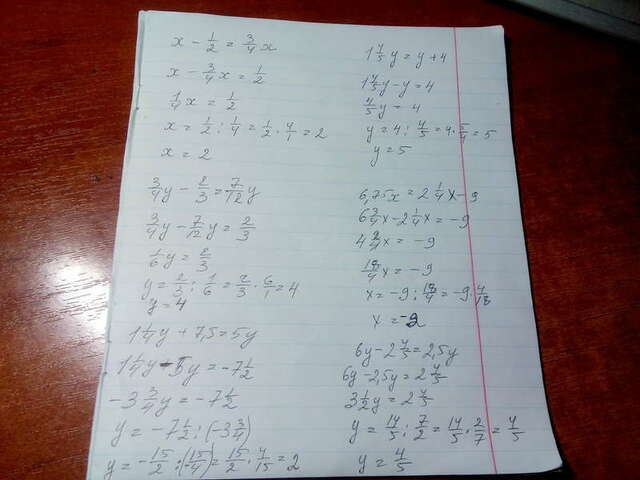 x - 1/2 = 3/4 x
x - 3/4 x = 1/2
1/4 x = 1/2
x = 1/2 : 1/4 = 1/2 · 4/1 = 2
x = 2
3/4 y - 2/3 = 7/12 y
3/4 y - 7/12 y = 2/3
1/6 y = 2/3
y = 2/3 : 1/6 = 2/3 · 6/1 = 4
y = 4
1 1/4 y + 7,5 = 5y
1 1/4 y - 5y = -7 1/2
-3 3/4 y = -7 1/2
y = -7 1/2 : (-3 3/4)
y = -15/2 : (15/4) = 15/2 · 4/15 = 2
1 4/5 y = y + 4
1 4/5 y - y = 4
4/5 y = 4
y = 4 : 4/5 = 4 · 5/4 = 5
y = 5
6,75x = 2 1/4 x - 9
6 3/4 x - 2 1/4 x = -9
4 2/4 x = -9
18/4 x = -9
x = -9 : 18/4 = -9 · 4/18
x = -2
6y - 2 4/5 = 2,5y
6y - 2,5y = 2 4/5
3 1/2 y = 2 4/5
y = 14/5 : 7/2 = 14/5 · 2/7 = 4/5
y = 4/5